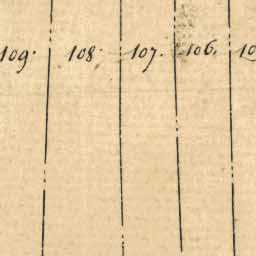 109. 108. 107. 106. 10